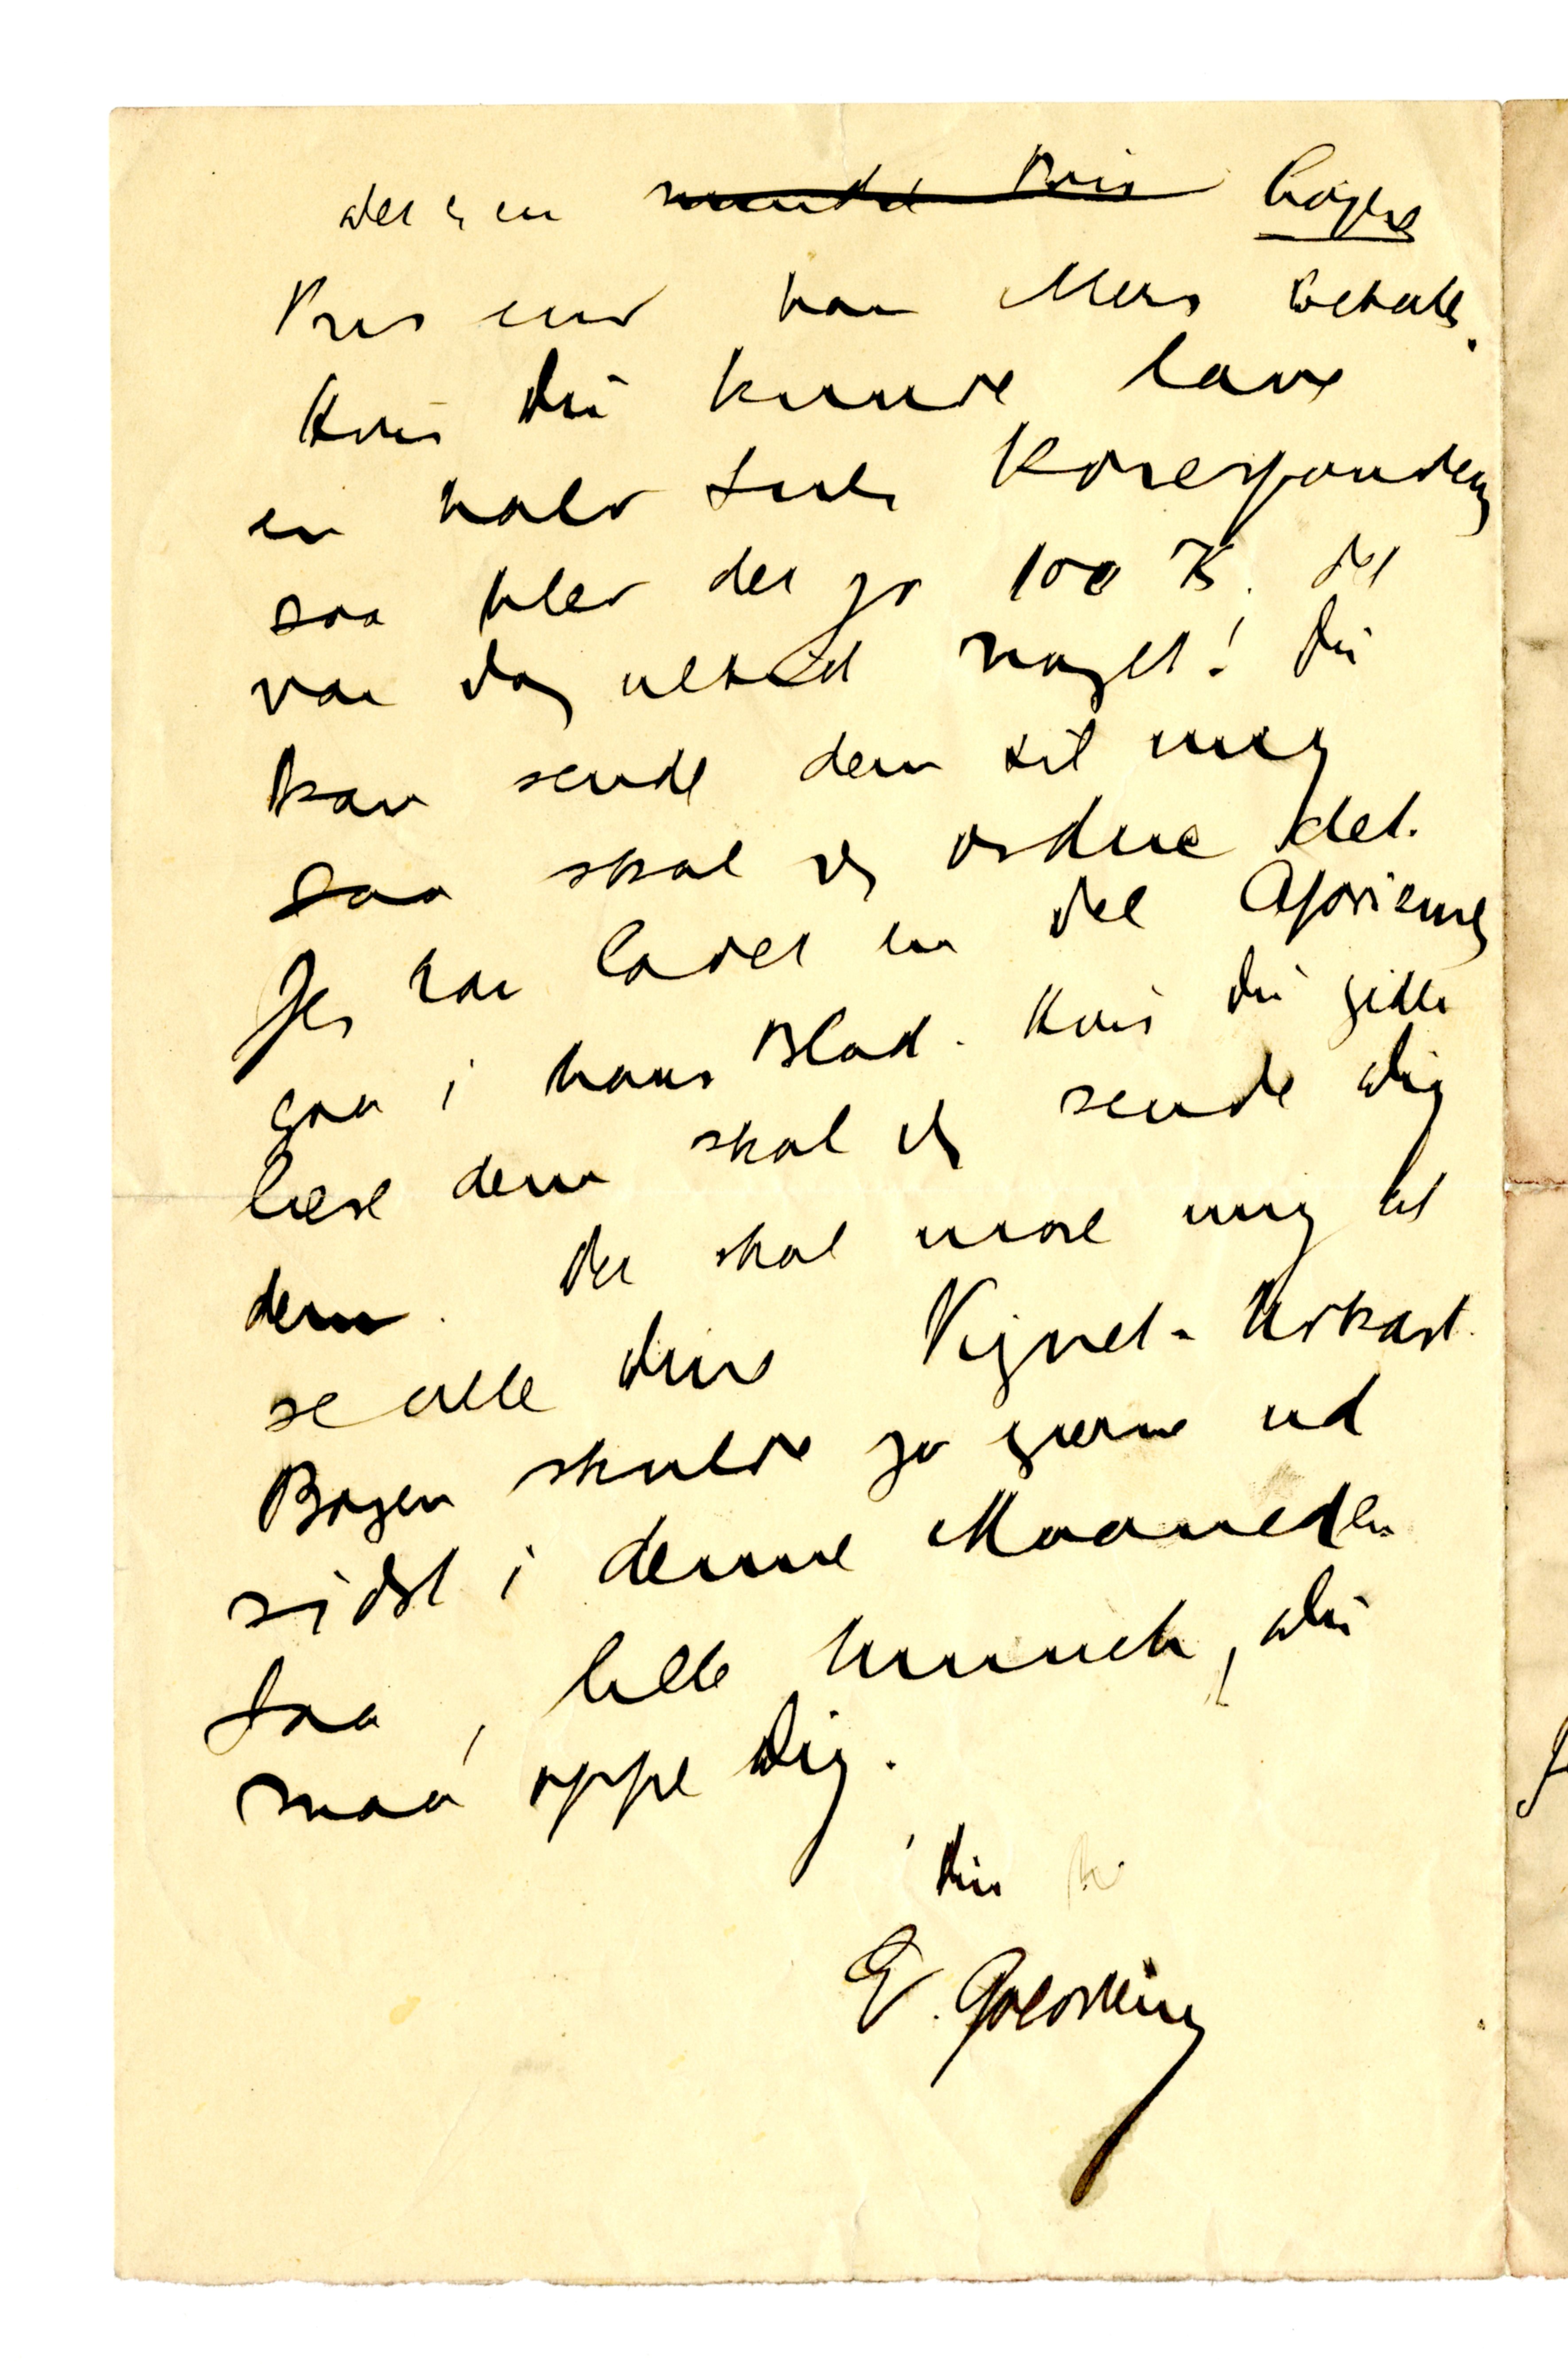 det er en ~~mindre Pris~~ højere
Pris end han ellers betaler.
Hvis Du kunde lave
en halv Snes Korrespondencer
saa blev det jo 100 K. det
var dog altid noget! Du
kan sende dem til mig
saa skal jeg ordne det.
Jeg har lavet en Del Aforismer
i hans Blad. Hvis Du gider
læse dem skal jeg sende dig
dem. Det skal more mig at
se alle dine Vignet-Udkast.
Bogen skulde jo gerne ud
sidst i denne Maaned.
Saa, lille Munch, du
maa oppe Dig.
Din
E. Goldstein